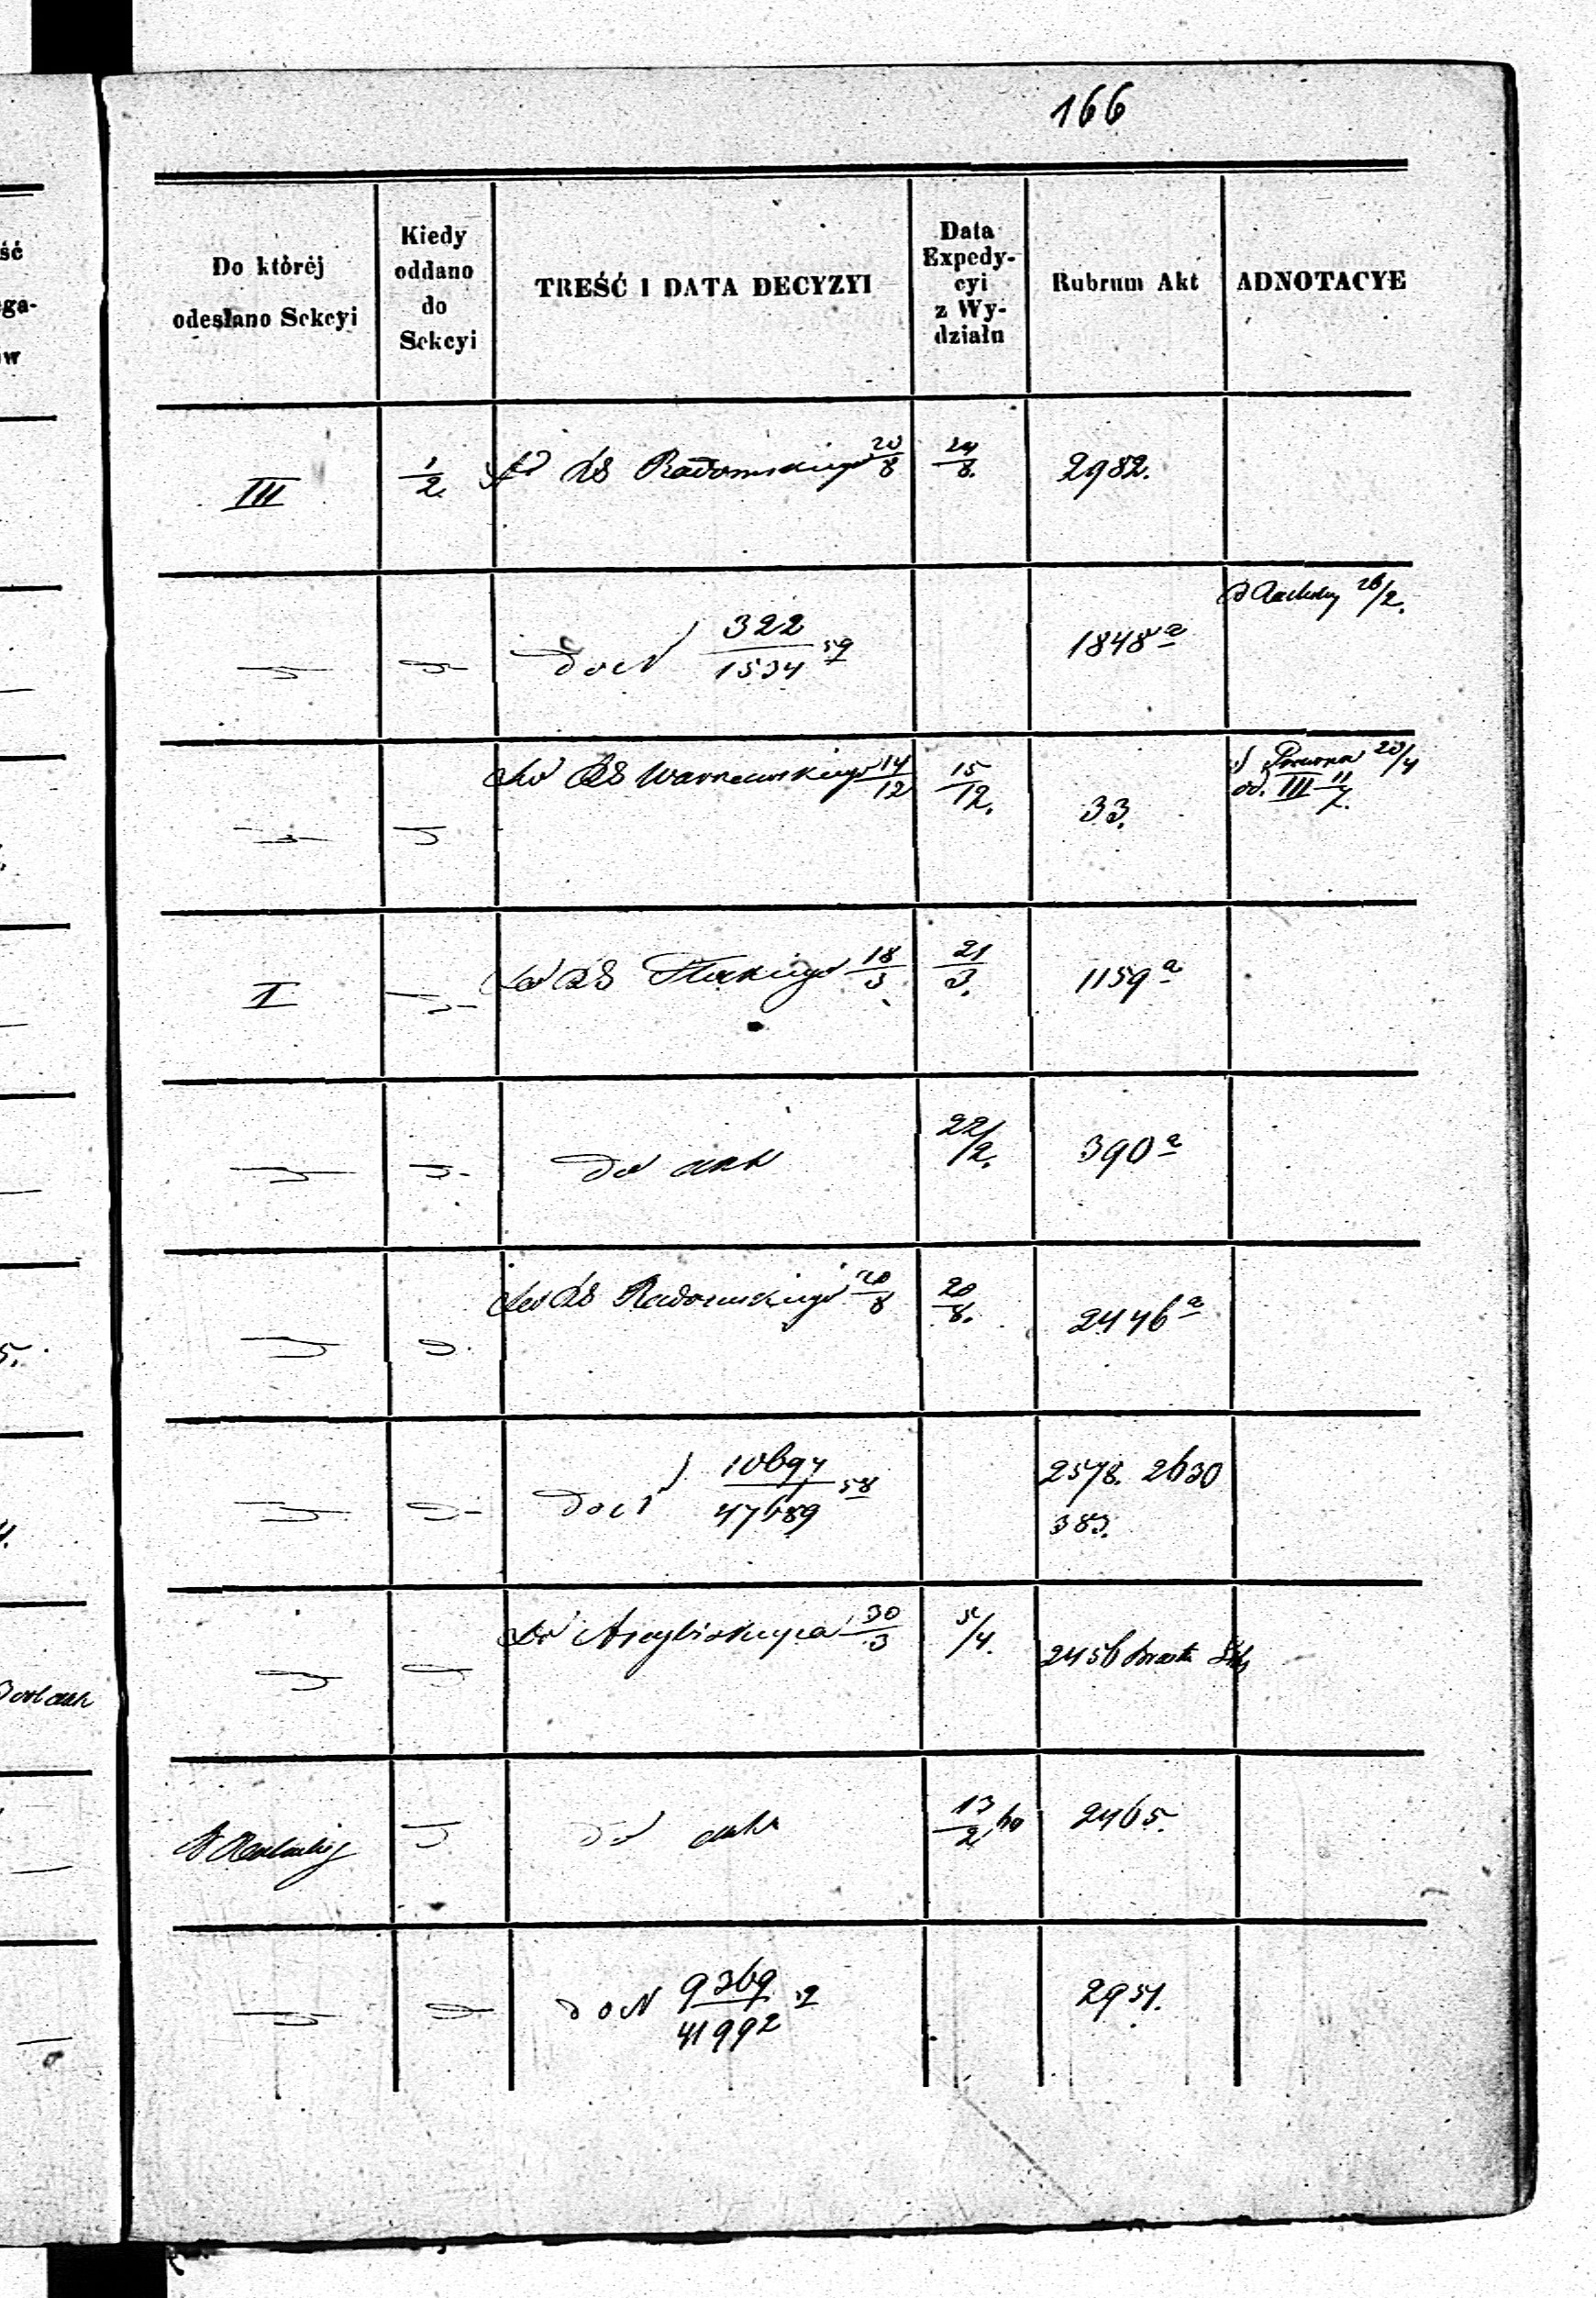 166
Do któréj
odesłano Sekcyi
Kiedy
oddano
do
Sekcyi
TREŚĆ I DATA DECYZYI
Data
Expedy-
cyi
z Wy-
działu
Rubrum Akt
ADNOTACYE
III 1/2 Radomskiego 20/8 24/8. 2982.
do N 322/1534 59 1848 a 26/2.
Warszawskiego 14/12 15/12. 33. 20/4
od. III 11/7.
I Płockiego 18/3 21/3. 1159 a
do akt 22/2. 390 a
Radomskiego 20/8 20/8. 2446 a
do N 10697/47689 58 2578. 2630
383.
Do Arcybiskupa 30/3 /4. 2456
do akt 13/2 60 2465.
do N 9369/41992 2951.
ść
ega-
ów
5.
4.